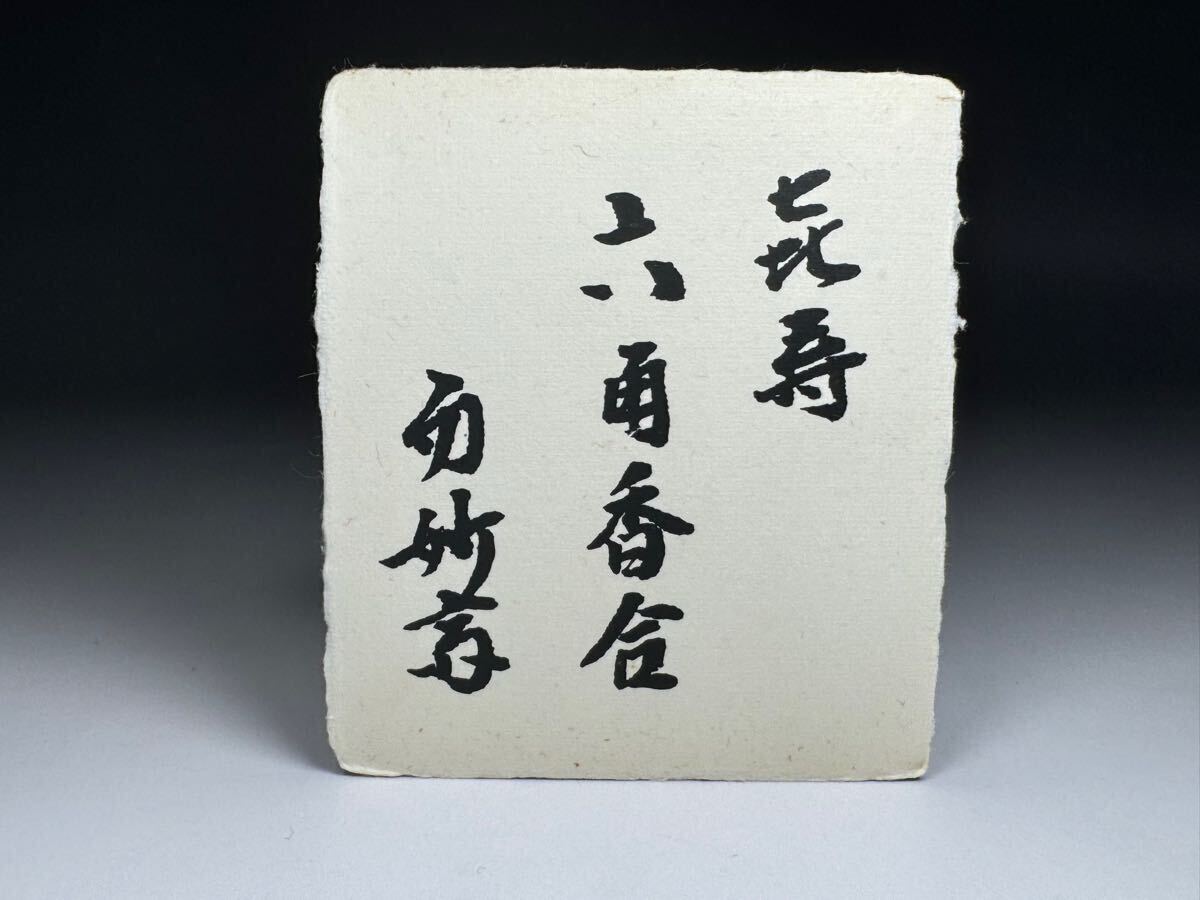 㐂寿
六角香合
而妙斎